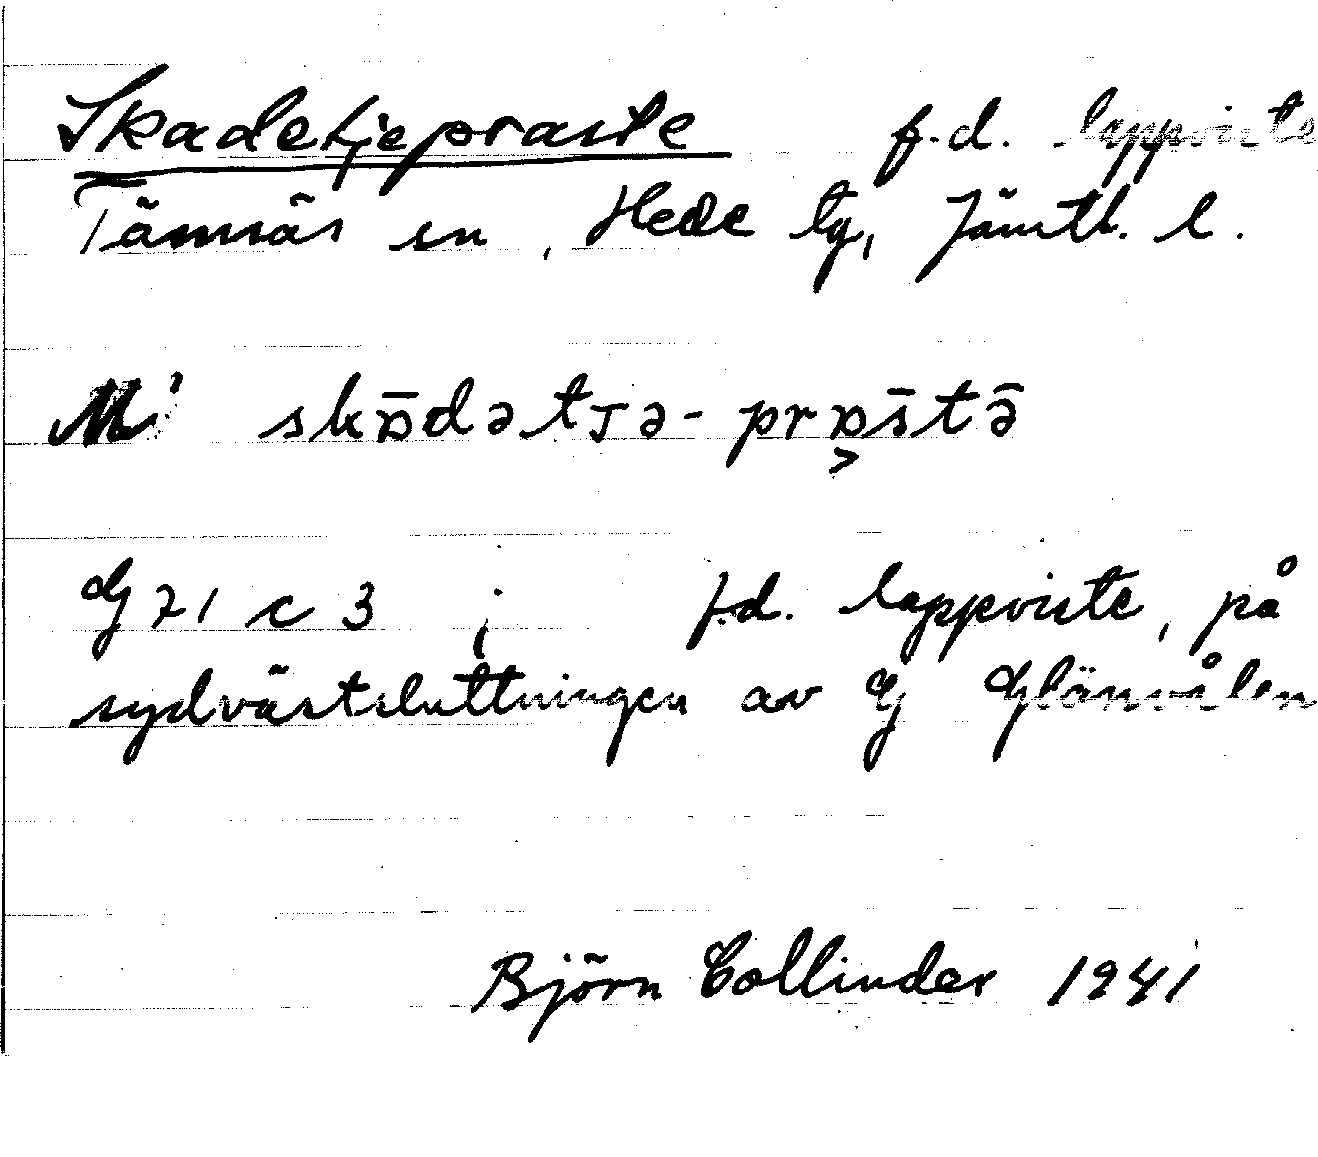 Skadetjepraste f.d. lappviste
Tännäs sn, Hede tg, Jämtl. l.
M' skɒ̄dətJə-prɒs̄tə̄
G 71 c 3 ; f.d. lappviste, på
sydvästsluttningen av Gj Glänvålen
Björn Collinder 1941